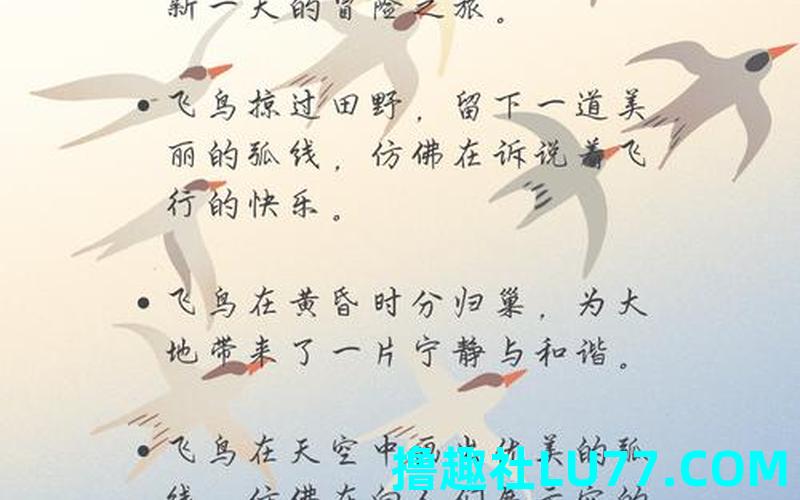 新一天的冒险之旅。
• 飞鸟掠过田野，留下一道美
丽的弧线，仿佛在诉说着飞
行的快乐。
• 飞鸟在黄昏时分归巢，为大
地带来了一片宁静与和谐。
• 飞鸟在天空中画出优美的弧
线，仿佛在向人们展示它的
撸趣社LU77.COM